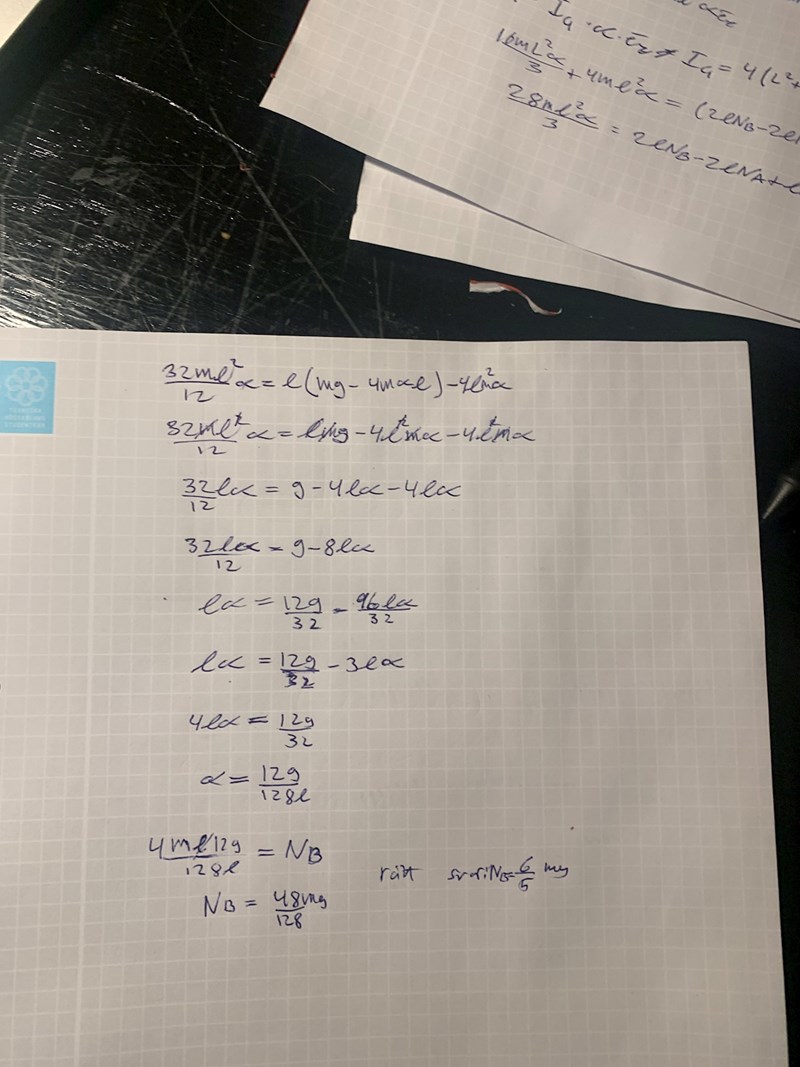 I_a · α · E_z ≠ I_a = 4(L²+
16mL²α/3 + 4ml²α = (2lN_B - 2l
28ml²α/3 = 2lN_B - 2lN_A + l
32ml²/12 α = l(mg - 4mαl) - 4lm²α
32ml²/12 α = lmg - 4l²mα - 4l²mα
32/12 lα = g - 4lα - 4lα
32lα/12 = g - 8lα
lα = 12g/32 - 96lα/32
lα = 12g/32 - 3lα
4lα = 12g/32
α = 12g/128l
4ml12g/128l = N_B
rätt N_B = 6/5 mg
N_B = 48mg/128